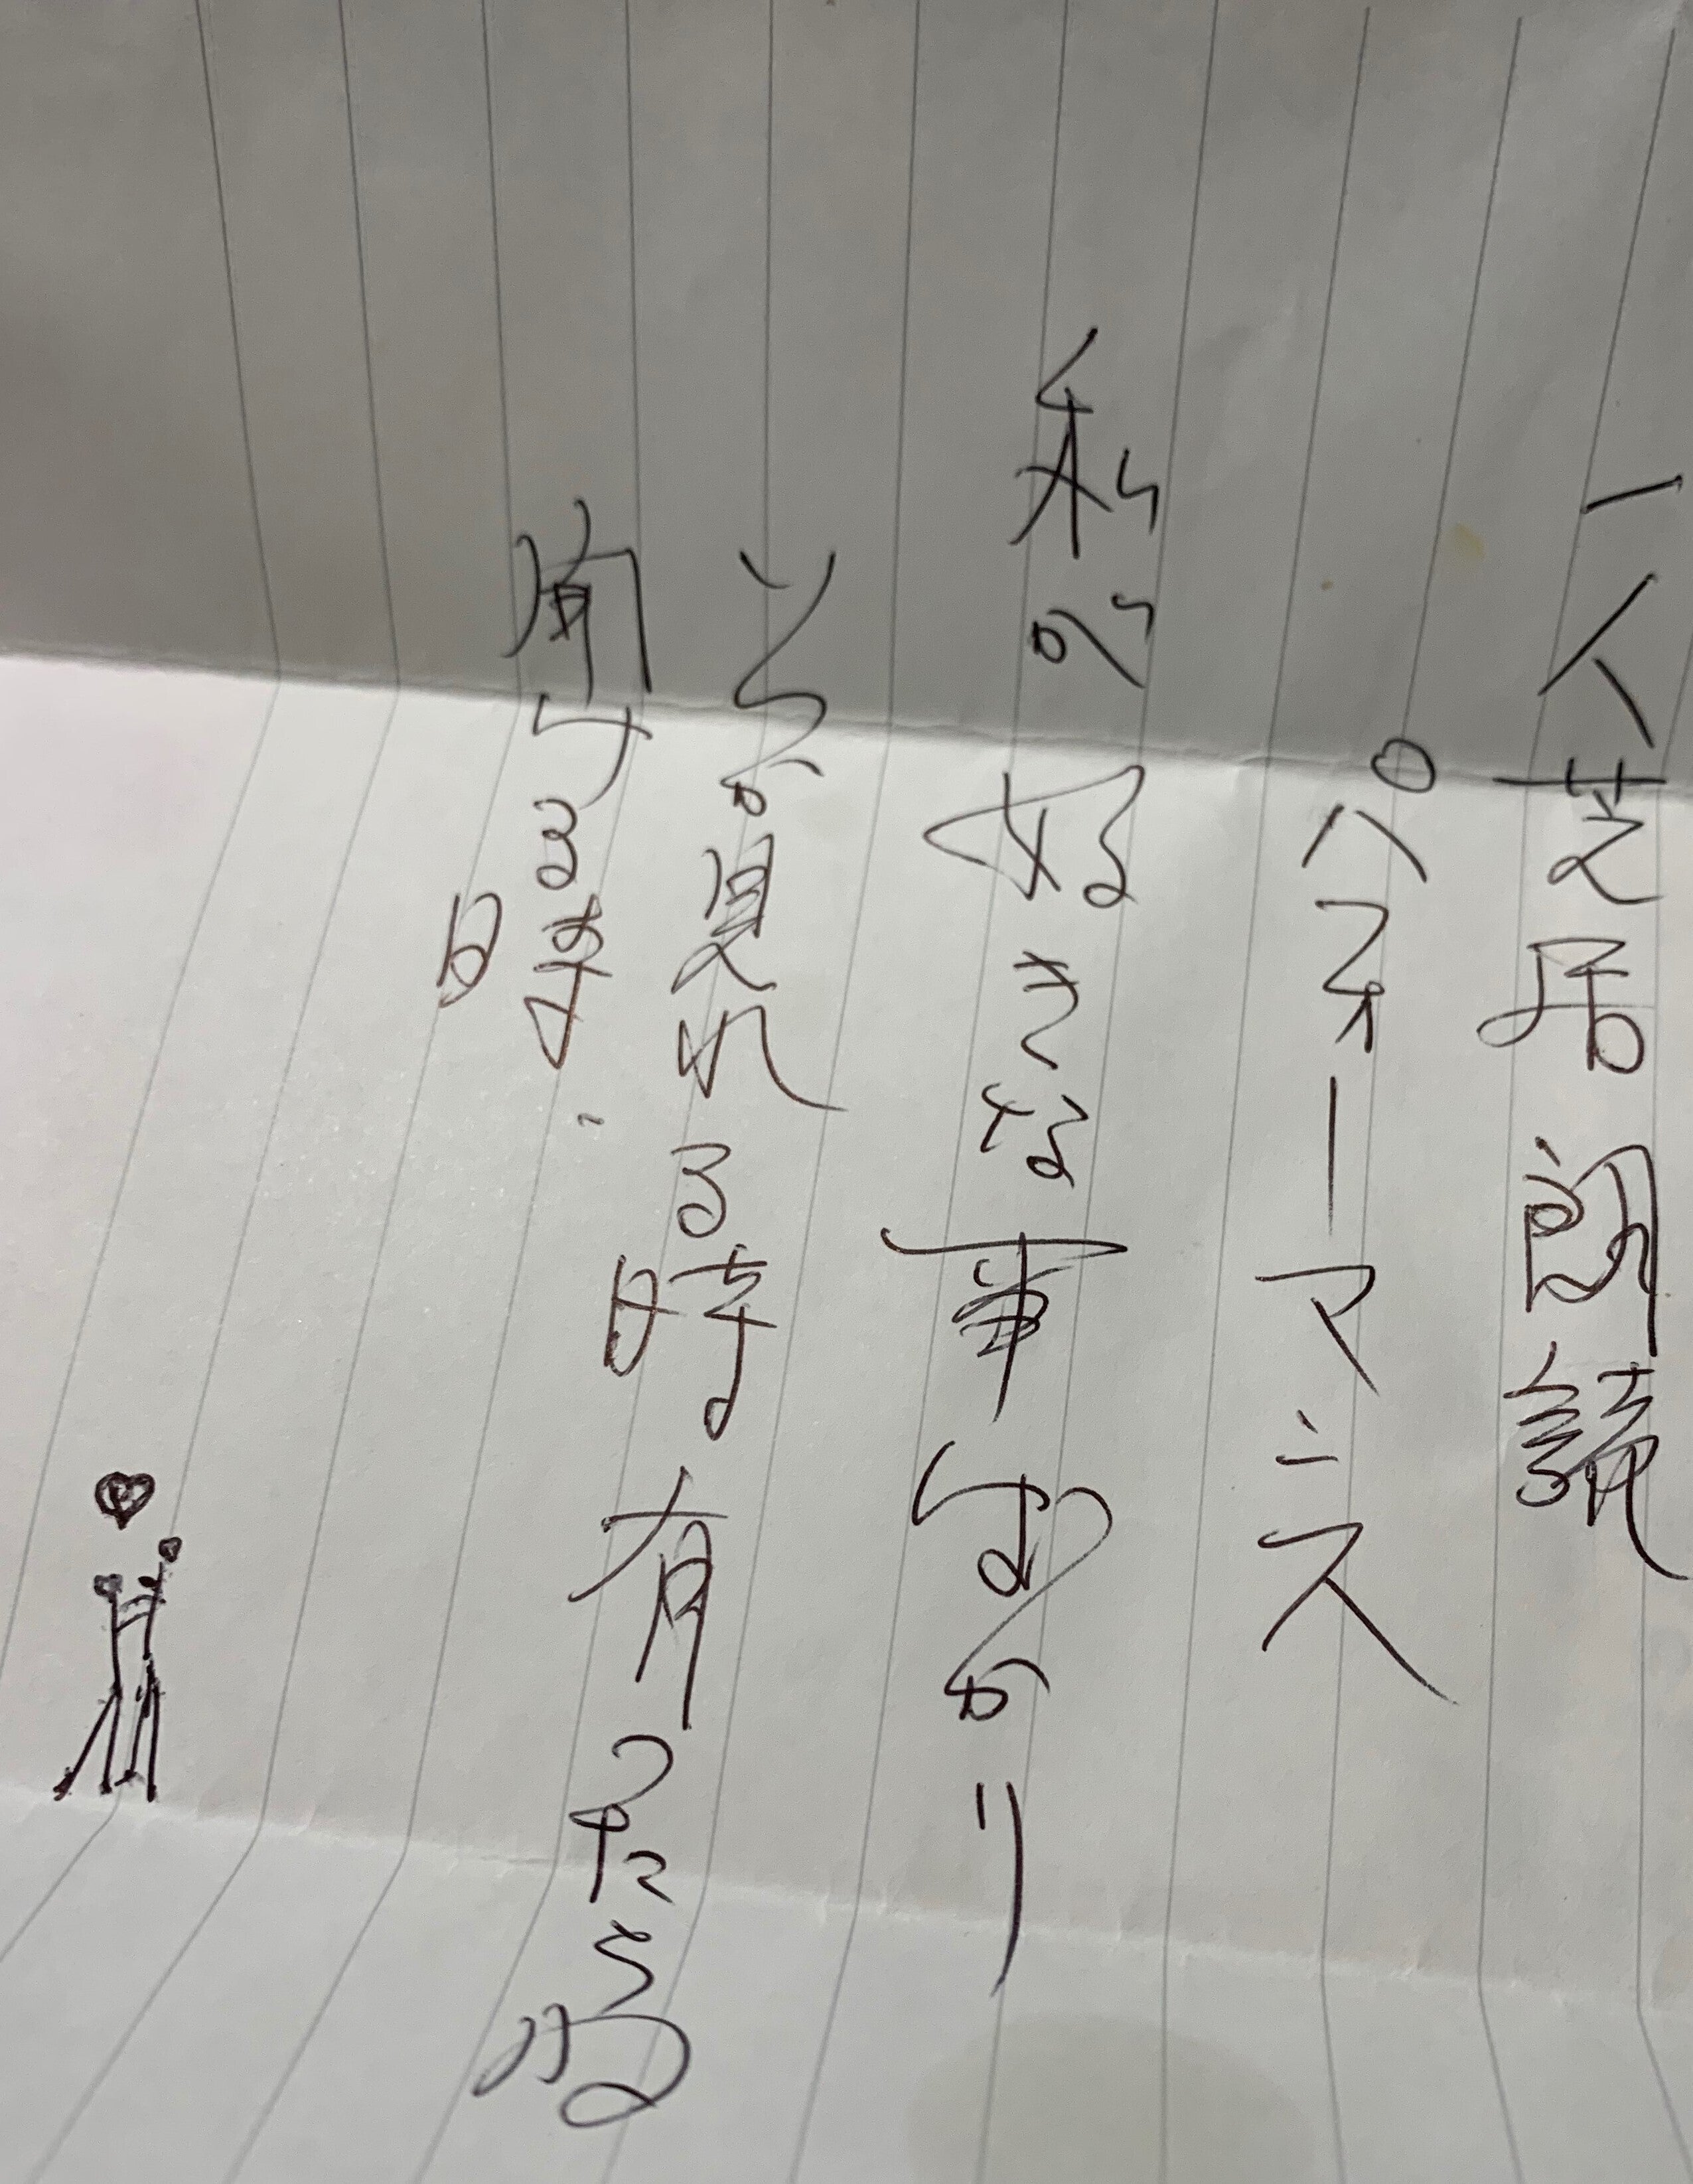 一人芝居朗読
パフォーマンス
私の好きな事ばかり
又見れる時有ったら
聞ける時